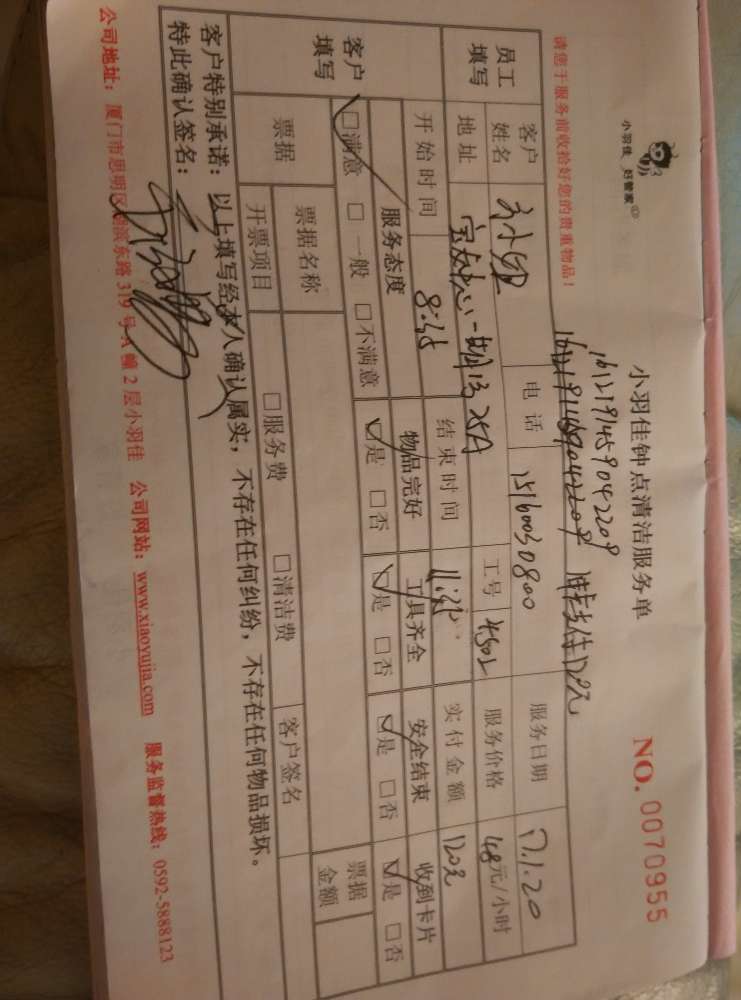 小羽佳 好管家
小羽佳钟点清洁服务单
NO. 0070955
1612191459042209
请您于服务前收拾好您的贵重物品!
员工填写 客户姓名 电话 15160030800 服务日期 17.1.20
地址 25A 工号 4502 服务价格 48元/小时
开始时间 8:35 结束时间 实付金额 120元
客户填写 服务态度 物品完好 工具齐全 安全结束 收到卡片
☑满意 □一般 □不满意 ☑是 □否 ☑是 □否 ☑是 □否 ☑是 □否
票据 票据名称 客户签名 票据金额
开票项目 □服务费 □清洁费
客户特别承诺：以上填写经本人确认属实，不存在任何纠纷，不存在任何物品损坏。
特此确认签名：
公司地址：厦门市思明区湖滨东路319号A幢2层小羽佳 公司网站：www.xiaoyujia.com 服务监督热线：0592-5888123